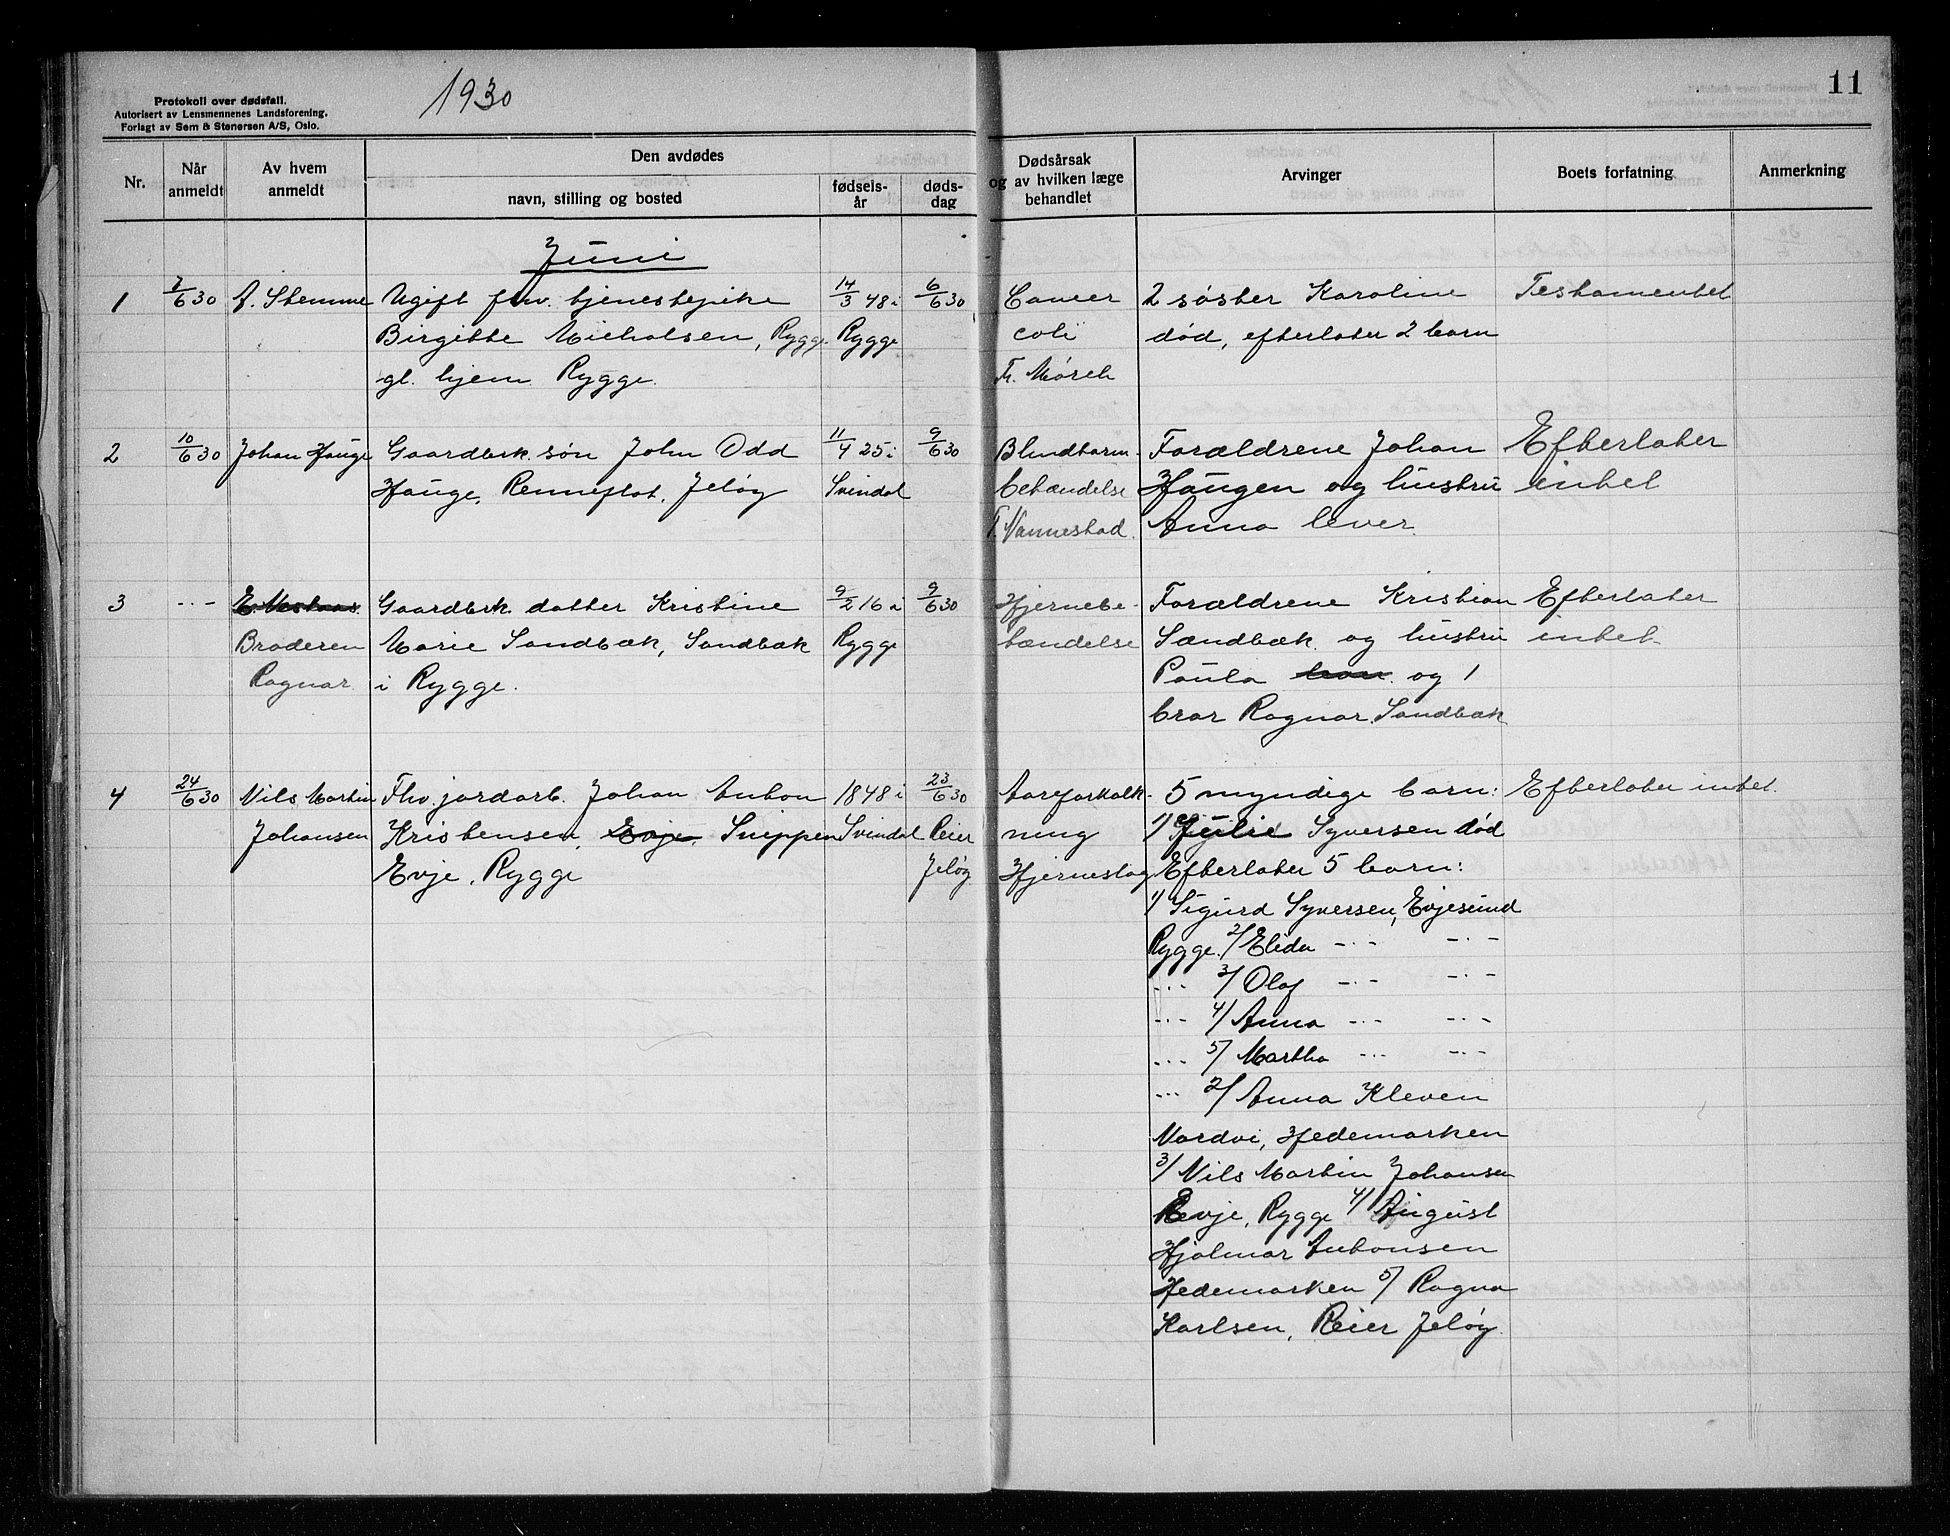 Protokoll over dødsfall.
Autorisert av Lensmennenes Landsforening.
Forlagt av Sem & Stenersen A/S, Oslo.
1930
11
Nr.
Når anmeldt
Av hvem anmeldt
Den avdødes
navn, stilling og bosted
fødsels-år
døds-dag
Dødsårsak og av hvilken læge behandlet
Arvinger
Boets forfatning
Anmerkning
Juni
1 7/6 30 A. Stemme Ugift fhv. tjenestepike 14/3 48 i 6/6 30 Cancer 2 søster Karoline Testamentet
Birgitte Nicholsen, Rygge Rygge coli død, efterlater 2 barn
gl. hjem Rygge. Fr. Mørch
2 10/6 30 Johan Hauge Gaardbrk. søn John Odd 11/4 25 i 9/6 30 Blindtarm- Forældrene Johan Efterlater
Hauge, Renneflot, Jeløy Svindal betændelse Haugen og hustru intet
T. Vannestad. Anna lever.
3 -.- E. Vestaas Gaardbrk. datter Kristine 9/2 16 i 9/6 30 Hjernebe- Forældrene Kristian Efterlater
Broderen Marie Sandbæk, Sandbæk Rygge tændelse Sandbæk og hustru intet
Ragnar i Rygge. Paula og 1
bror Ragnar Sandbæk
4 24/6 30 Nils Martin Fhv. jordarb. Johan Anton 1848 i 23/6 30 Aareforkalk- 5 myndige barn: Efterlater intet.
Johansen Kristensen, Evje, Snippen Svindal Reier ning 1/ Julie Syversen død
Evje, Rygge Jeløy Hjerneslag Efterlater 5 barn:
1/ Sigurd Syversen, Evjesund
Rygge. 2/ Elida -.- -.-
-.- 3/ Olaf -.- -.-
-.- 4/ Anna -.- -.-
-.- 5/ Martha -.- -.-
-.- 2/ Anna Kleven
Vardvi, Hedemarken
3/ Nils Martin Johansen
Evje, Rygge 4/ August
Hjalmar Antonsen
Hedemarken 5/ Ragna
Karlsen, Reier Jeløy.